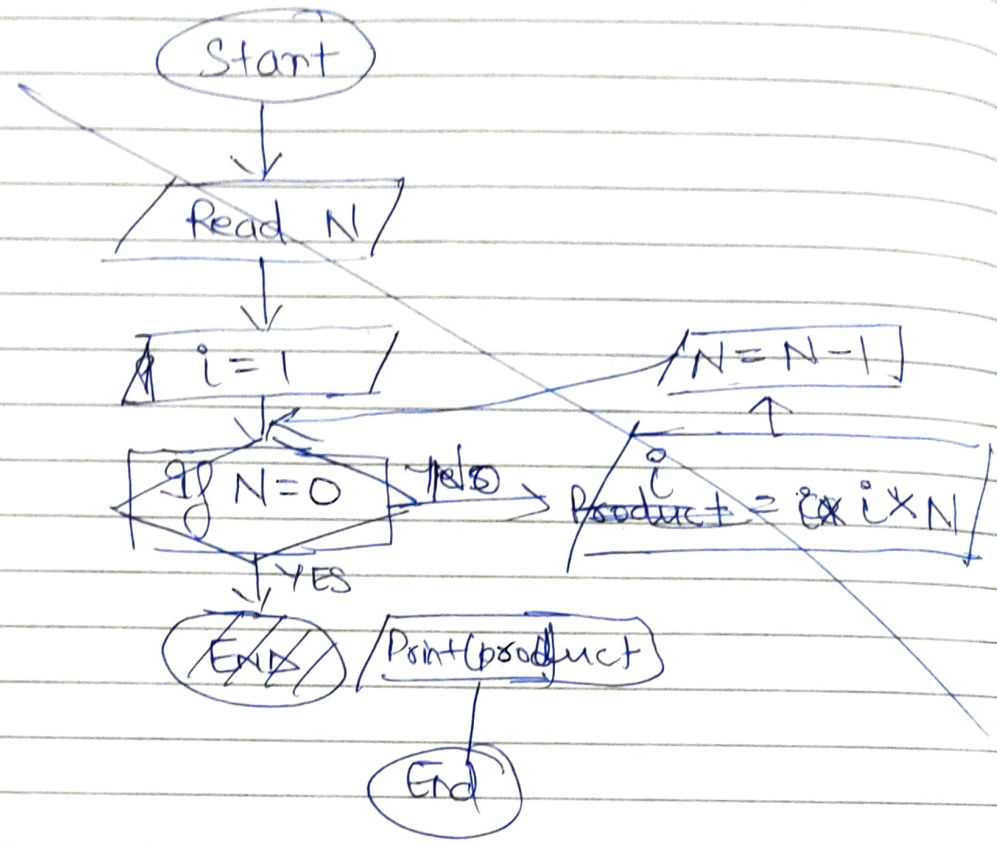 Start
Read N
i = 1
N = N - 1
If N = 0
No
i
Product = i x N
YES
END
Print(product)
End